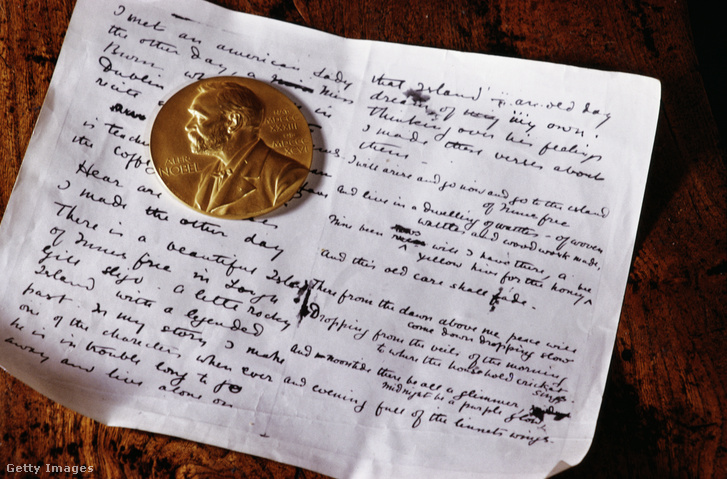 I met an american Lady
the other day, a Miss
Burn
Dublin in
recite
is teach
the coff
Hear are
I made the other day
There is a beautiful Isla
of Innis free in Lough
Gill Sligo. A little rocky
Island with a legended
past. In my story I make
one of the characters when ever
he is in trouble long to go
away and live alone on
that Island - an old day
dream of my own.
Thinking over his feelings
I made these verses about
them -
I will arise and go now and go to the island
of Innis free
and live in a dwelling of wattles - of woven
wattles and wood work made,
Nine bean rows will I have there, a
yellow hive for the honey
And this old care shall fade.
There from the dawn above me peace will
come down dropping slow
Dropping from the veils of the morning
to where the household cricket
sings.
And noontide there be all a glimmer,
midnight be a purple glow
and evening full of the linnets wings.
ALFR.
NOBEL
Getty Images